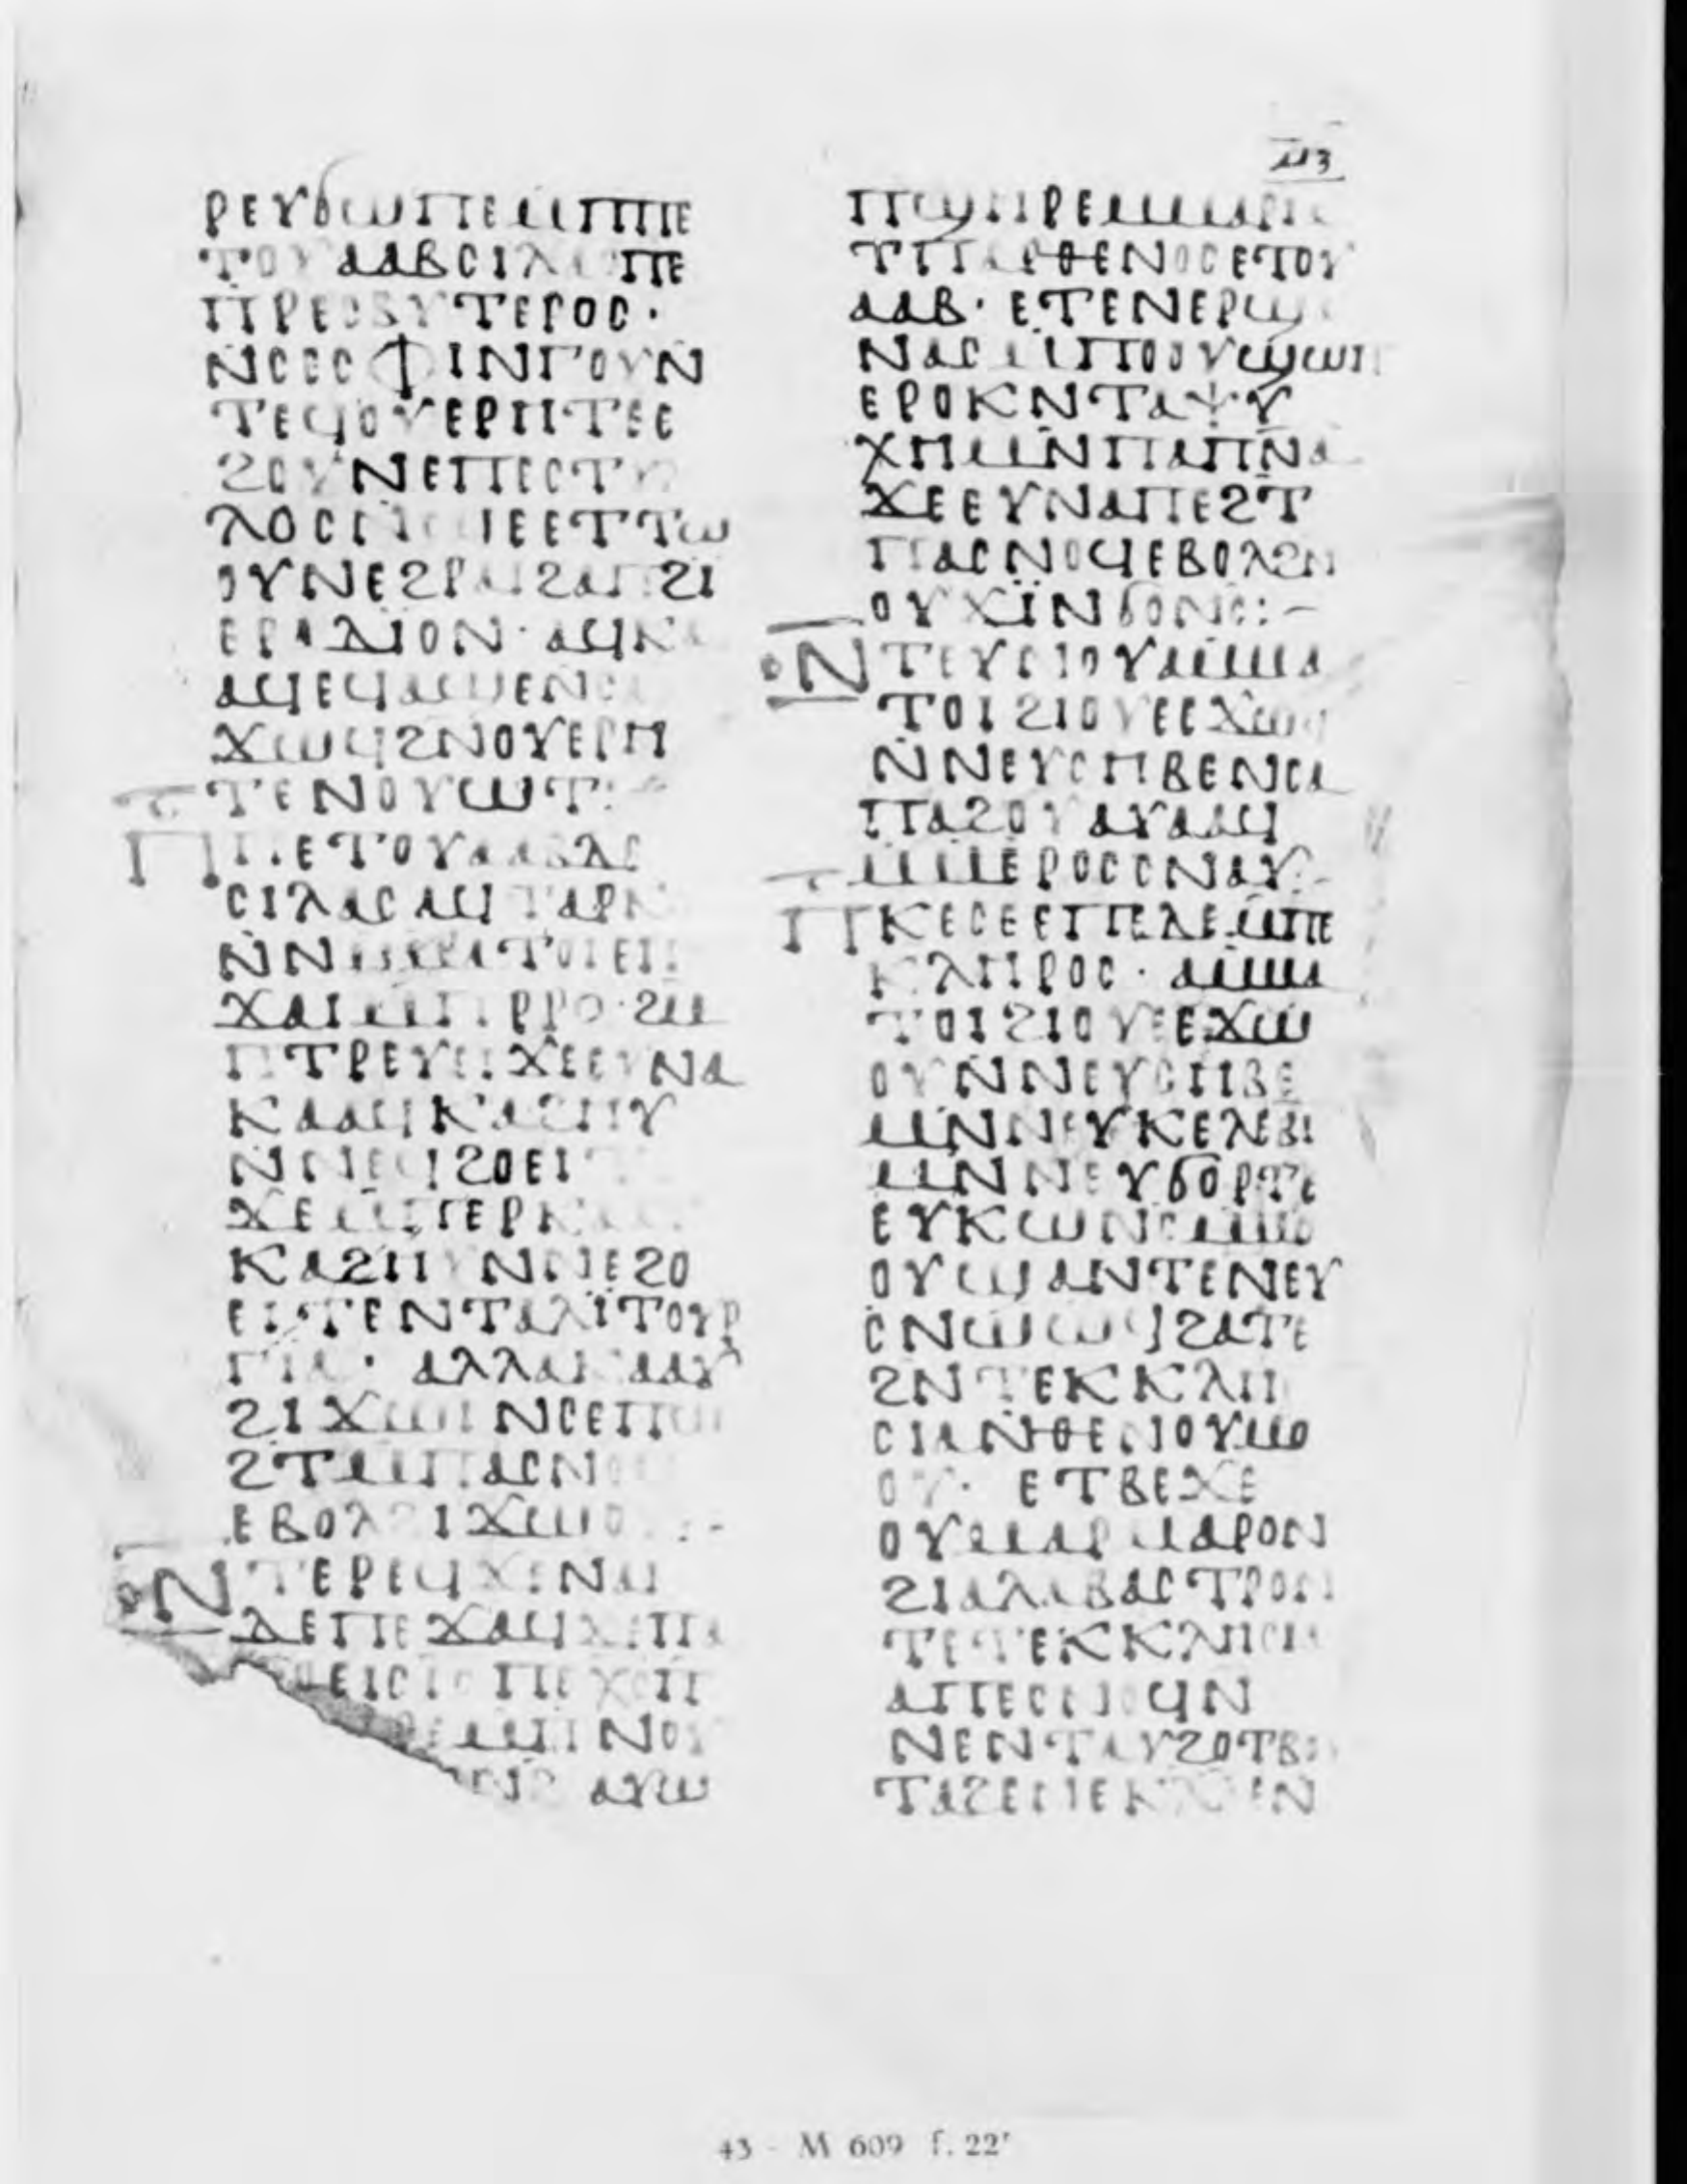 ⲙ̅ⲍ̅
ⲣⲉⲩϭⲱⲡⲉ ⲙⲡⲡⲉ
ⲧⲟⲩⲁⲁⲃ ⲥⲓⲗⲁⲥ ⲡⲉ
ⲡⲣⲉⲥⲃⲩⲧⲉⲣⲟⲥ·
ⲛⲥⲉⲥⲫⲓⲛⲅⲟⲩ ⲛ
ⲧⲉϥⲟⲩⲉⲣⲏⲧⲉ ⲉ
ϩⲟⲩⲛ ⲉⲡⲉⲥⲧⲩ
ⲗⲟⲥ
ⲟⲩⲛ ⲉϩⲣⲁⲓ ϩⲁⲡϩⲓ
ⲉⲣⲁⲇⲓⲟⲛ· ⲁϥⲕⲁ
ⲁϥ ⲉϥⲁϣⲉ ⲛⲥⲁ
ϫⲱϥ ϩⲛⲟⲩⲉⲣⲏ
ⲧⲉ ⲛⲟⲩⲱⲧ:
ⲡⲡⲉⲧⲟⲩⲁⲁⲃ ⲇⲉ
ⲥⲓⲗⲁⲥ ⲁϥⲧⲁⲣⲕⲟ
ⲛⲛⲙⲙⲁⲧⲟⲓ
ϫⲁⲓ ⲙⲡⲣⲣⲟ· ϩⲙ
ⲡⲧⲣⲉⲩⲉⲓ ϫⲉ ⲉⲩⲛⲁ
ⲕⲁⲁϥ ⲕⲁϩⲏⲩ
ⲛⲛⲉϥϩⲟⲉⲓⲧⲉ
ϫⲉ ⲙⲡⲉⲣⲕⲁⲁⲧ
ⲕⲁϩⲏⲩ ⲛⲛⲉϩⲟ
ⲉⲓⲧⲉ ⲛⲧⲁⲗⲓⲧⲟⲩⲣ
ⲅⲓⲁ· ⲁⲗⲗⲁ ⲕⲁⲁⲩ
ϩⲓϫⲱⲓ ⲛⲥⲉⲡⲱ
ϩⲧ ⲙⲡⲁⲥⲛⲟϥ
ⲉⲃⲟⲗ ϩⲓϫⲱⲟⲩ:-
ⲛⲧⲉⲣⲉϥϫⲓⲛⲁⲓ
ⲇⲉ ⲡⲉϫⲁϥ ϫⲉ ⲡⲁ
ϫⲟⲉⲓⲥ ⲓⲥ ⲡⲉⲭⲥ ⲡ
ⲙⲡⲛⲟⲩ
ⲁⲩⲱ
ⲡϣⲏⲣⲉ ⲙⲙⲁⲣⲓⲁ
ⲧⲡⲁⲣⲑⲉⲛⲟⲥ ⲉⲧⲟⲩ
ⲁⲁⲃ· ⲉⲧⲉⲛⲉⲣϣ
ⲛⲁⲥ ⲙⲡⲟⲟⲩ ϣⲱⲡ
ⲉⲣⲟⲕ ⲛⲧⲁⲯⲩ
ⲭⲏ ⲙⲛ ⲡⲁⲡⲛⲁ
ϫⲉ ⲉⲩⲛⲁⲡⲉϩⲧ
ⲡⲁⲥⲛⲟϥ ⲉⲃⲟⲗ ϩⲛ
ⲟⲩϫⲓⲛϭⲟⲛⲥ:-
ⲛⲧⲉⲩⲛⲟⲩ ⲁⲙⲙⲁ
ⲧⲟⲓ ϩⲓⲟⲩⲉ ⲉϫⲱϥ
ⲛⲛⲉⲩⲥⲏⲃⲉ ⲛⲥⲁ
ⲡⲁϩⲟⲩ ⲁⲩⲁⲁϥ
ⲙⲙⲉⲣⲟⲥ ⲥⲛⲁⲩ:-
ⲡⲕⲉⲥⲉⲉⲡⲉ ⲇⲉ ⲙⲡⲉ
ⲕⲗⲏⲣⲟⲥ· ⲁⲙⲙⲁ
ⲧⲟⲓ ϩⲓⲟⲩⲉ ⲉϫⲱ
ⲟⲩ ⲛⲛⲉⲩⲥⲏⲃⲉ
ⲙⲛ ⲛⲉⲩⲕⲉⲗⲉⲃⲓ
ⲙⲛ ⲛⲉⲩϭⲟⲣⲧⲉ
ⲉⲩⲕⲱⲛⲥ ⲙⲙⲟ
ⲟⲩ ϣⲁⲛⲧⲉ ⲛⲉⲩ
ⲥⲛⲱⲱϥ ϩⲁⲧⲉ
ϩⲛ ⲧⲉⲕⲕⲗⲏ
ⲥⲓⲁ ⲛⲑⲉ ⲛⲟⲩⲙⲟ
ⲟⲩ· ⲉⲧⲃⲉ ϫⲉ
ⲟⲩⲙⲁⲣⲙⲁⲣⲟⲛ
ϩⲓ ⲁⲗⲁⲃⲁⲥⲧⲣⲟⲛ
ⲧⲉ ⲧⲉⲕⲕⲗⲏⲥⲓⲁ
ⲁⲡⲉⲥⲛⲟϥ ⲛ
ⲛⲉⲛⲧⲁⲩϩⲟⲧⲃⲟⲩ
ⲧⲁϩⲉ ⲛⲉⲕϫⲓⲛ
43 - M 609 f. 22ʳ